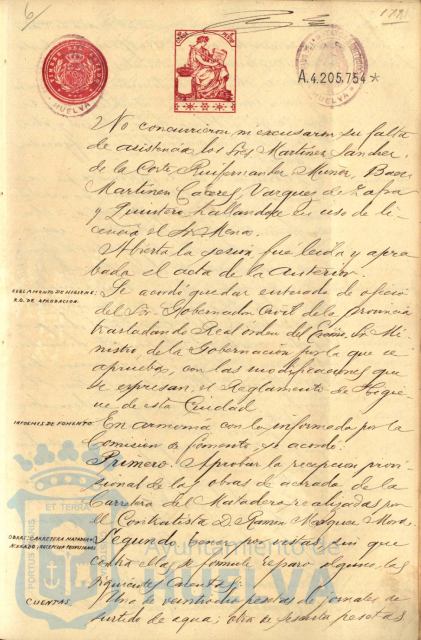 6
A.4.205.754*
HUELVA
No concurrieron, ni excusaron su falta
de asistencia los Sres Martinez Sanchez,
de la Corte, Ruifernandez Muñoz,
Martinez Caceres, Vazquez de Zafra
y Quintero, hallandose en uso de li-
cencia el Sr Mena.
Abierta la sesion, fue leida y apro-
bada el acta de la anterior.
REGLAMENTO DE HIGIENE:
R.O. DE APROBACION.
Se acordó quedar enterado de oficio
del Sor. Gobernador Civil de la provincia
trasladando Real orden del Excmo. Sr Mi-
nistro de la Gobernación por la que se
aprueba, con las modificaciones que
se expresan, el Reglamento de Higie-
ne de esta Ciudad
INFORMES DE FOMENTO
En armonia con lo informado por la
Comision de Fomento, se acordó:
Primero. Aprobar la recepcion provi-
sional de las obras de acerado de la
Carretera del Matadero, realizadas por
el Contratista D. Ramon Mora.
OBRAS: CARRETERA MATADERO
ACERADO: RECEPCION PROVISIONAL
Segundo. por vistas, sin que
contra ellas se formule reparo alguno, las
siguientes cuentas:
CUENTAS.
Una de veintiocho pesetas de jornales de
surtido de agua; otra de sesenta pesetas
Ayuntamiento de
HUELVA
PORTUS MARIS
ET TERRAE